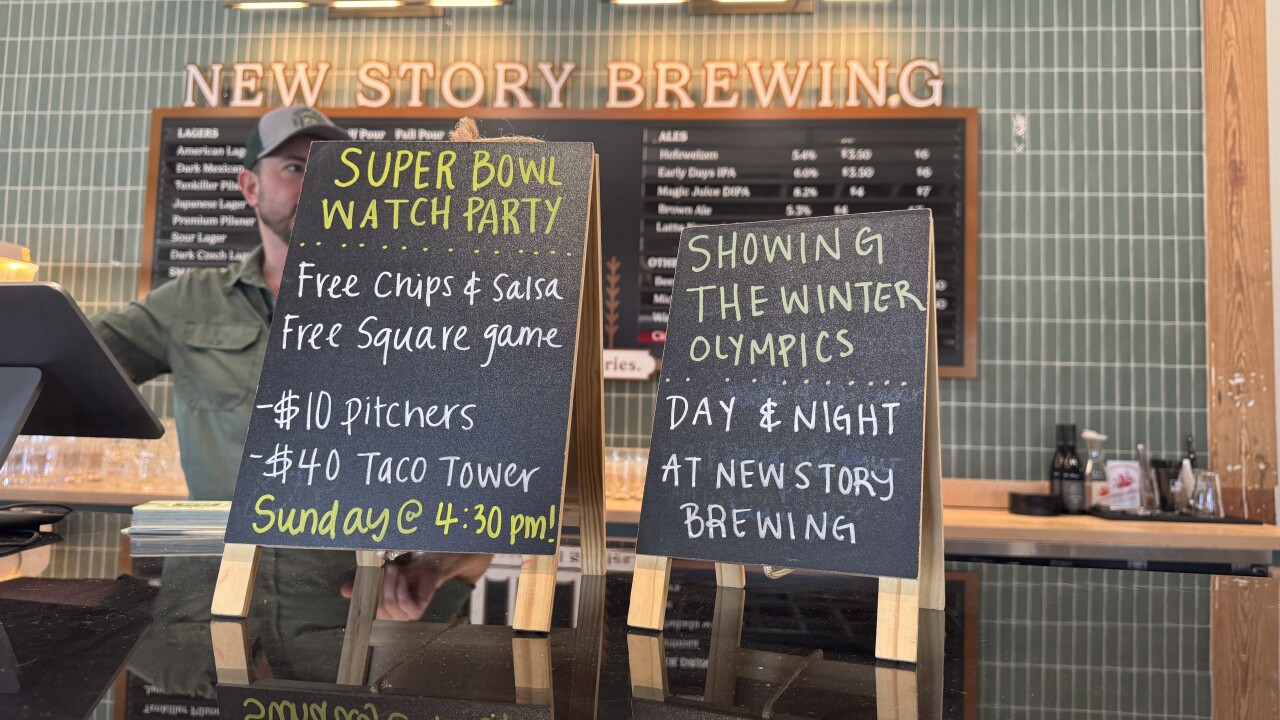 NEW STORY BREWING
LAGERS
Half Pour Full Pour
American Lag
Dark Mexican
Tenkiller Pils
Japanese Lager
Premium Pilsner
Sour Lager
Dark Czech Lag
ALES
Hefeweizen 5.4% $3.50 $6
Early Days IPA 6.0% $3.50 $6
Magic Juice DIPA 8.2% $4 $7
Brown Ale 5.3% $4
SUPER BOWL
WATCH PARTY
Free Chips & Salsa
Free Square game
-$10 pitchers
-$40 Taco Tower
Sunday @ 4:30 pm!
SHOWING
THE WINTER
OLYMPICS
DAY & NIGHT
AT NEW STORY
BREWING
ries.